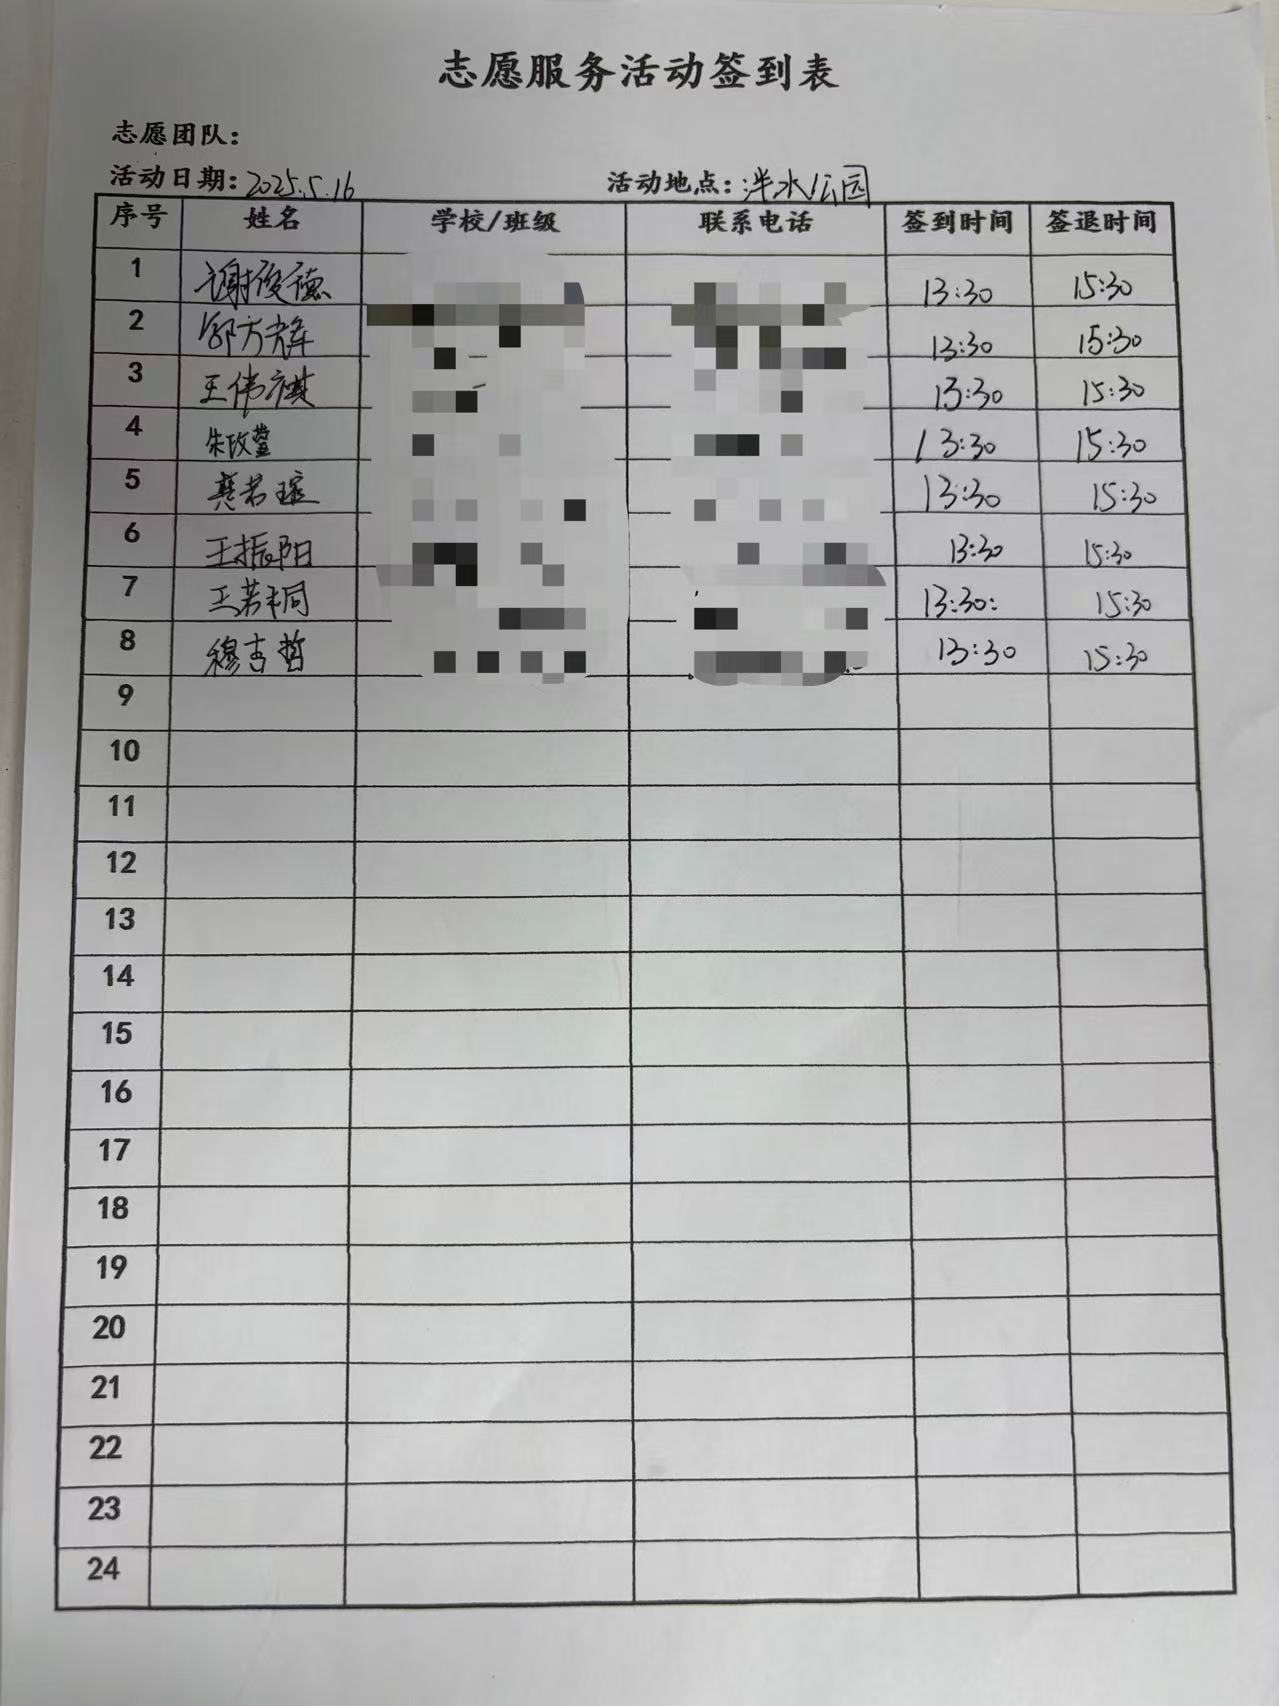 志愿服务活动签到表
志愿团队:
活动日期: 2025.5.16 活动地点: 泮水公园
序号 姓名 学校/班级 联系电话 签到时间 签退时间
1 谢俊德 13:30 15:30
2 郭方辉 13:30 15:30
3 王伟祺 13:30 15:30
4 朱玫莹 13:30 15:30
5 龚若瑄 13:30 15:30
6 王振阳 13:30 15:30
7 王若桐 13:30: 15:30
8 穆吉哲 13:30 15:30
9
10
11
12
13
14
15
16
17
18
19
20
21
22
23
24